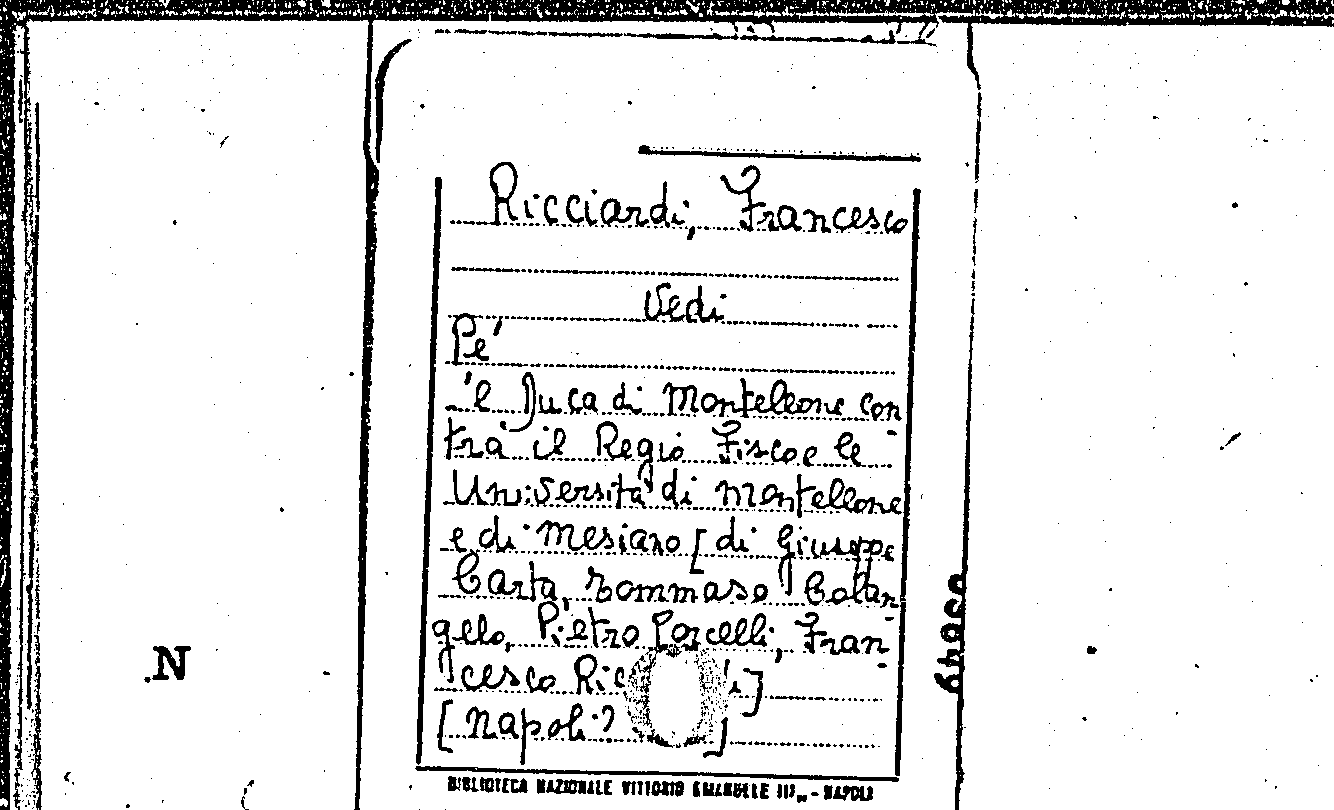 Ricciardi, Francesco
Vedi
Pe'
'l Duca di Monteleone con-
tra il Regio Fisco e le
Università di Monteleone
e di Mesiano [di Giuseppe
Carta, Tommaso Colan-
gelo, Pietro Porcelli, Fran-
cesco
[Napoli?
BIBLIOTECA NAZIONALE VITTORIO EMANUELE III - NAPOLI
N